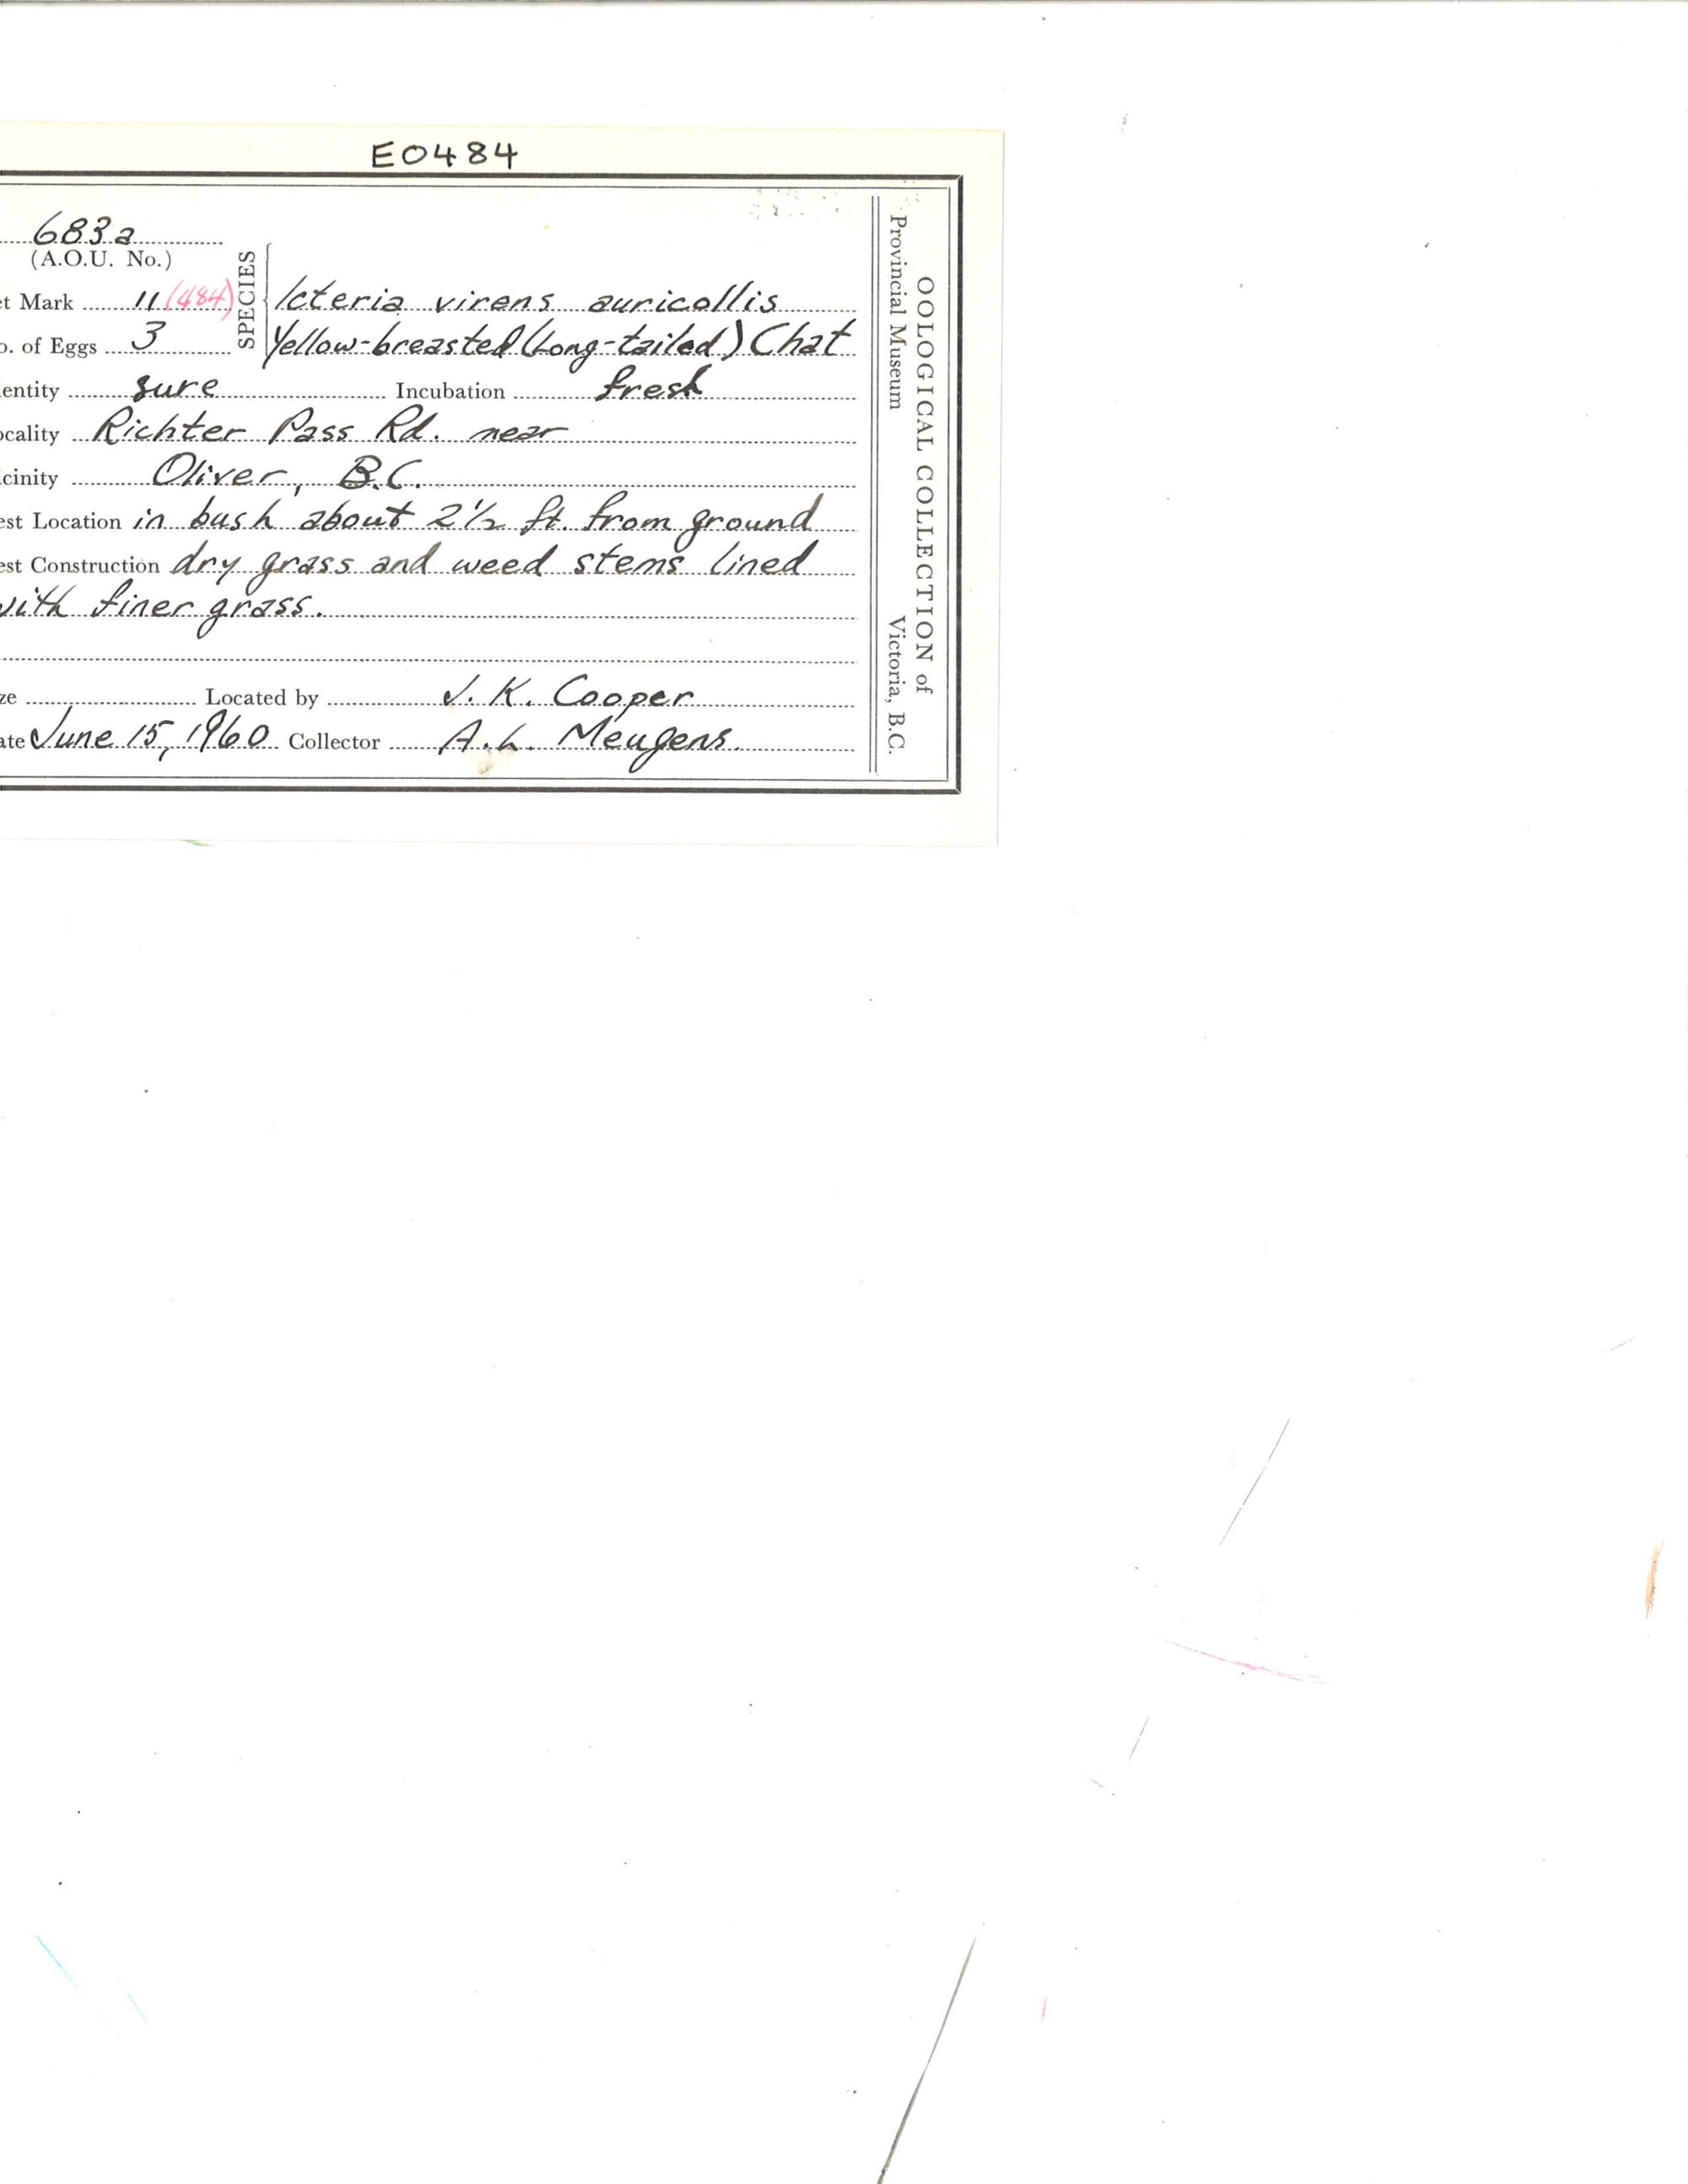 E0484
683a
(A.O.U. No.)
et Mark 11 (484)
SPECIES
Icteria virens auricollis
o. of Eggs 3
Yellow-breasted (Long-tailed) Chat
entity sure Incubation fresh
ocality Richter Pass Rd. near
cinity Oliver, B.C.
est Location in bush about 2 1/2 ft. from ground
est Construction dry grass and weed stems lined
with finer grass.
ze Located by J. K. Cooper
ate June 15, 1960 Collector A.L. Meugens
OOLOGICAL COLLECTION of
Provincial Museum Victoria, B.C.